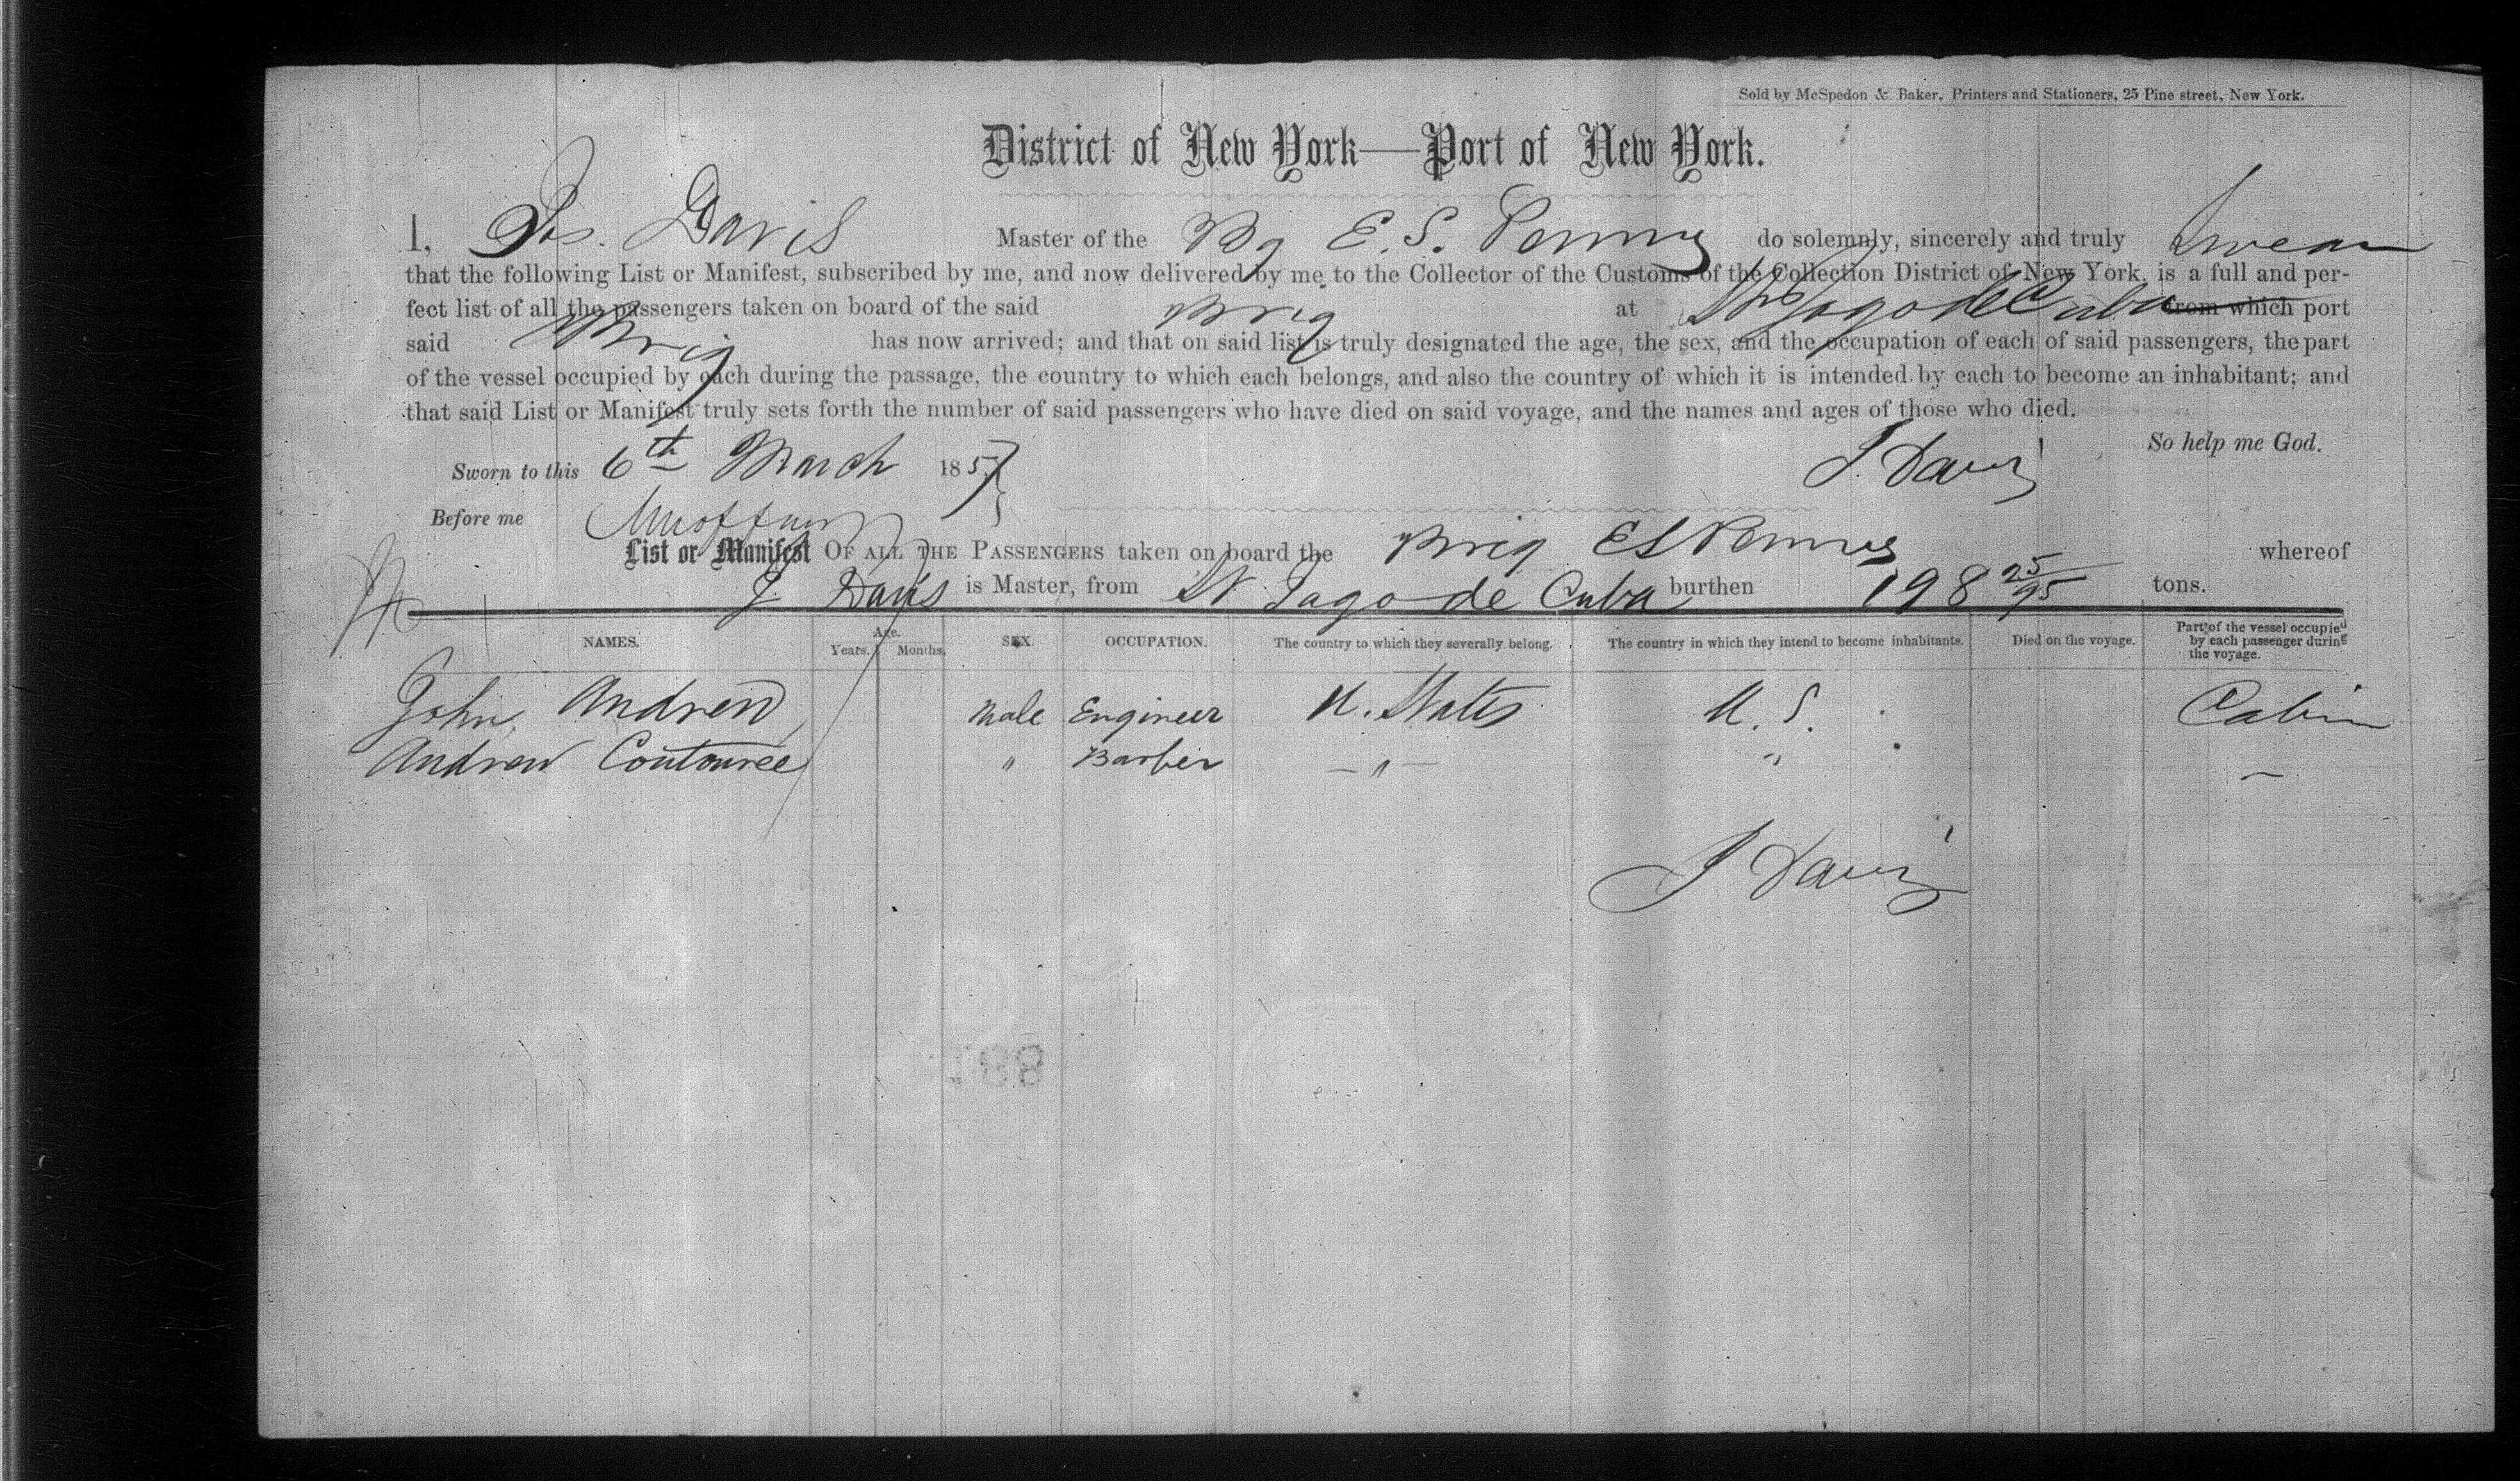 Sold by McSpedon & Baker, Printers and Stationers, 25 Pine street, New York.
District of New York—Port of New York.
I, Jos. Davis Master of the Bg E. S. Penny do solemnly, sincerely and truly Swear
that the following List or Manifest, subscribed by me, and now delivered by me to the Collector of the Customs of the Collection District of New York, is a full and per-
fect list of all the passengers taken on board of the said Brig at St Jago de Cuba from which port
said Brig has now arrived; and that on said list is truly designated the age, the sex, and the occupation of each of said passengers, the part
of the vessel occupied by each during the passage, the country to which each belongs, and also the country of which it is intended by each to become an inhabitant; and
that said List or Manifest truly sets forth the number of said passengers who have died on said voyage, and the names and ages of those who died.
So help me God.
Sworn to this 6th March 1857 J. Davis
Before me
List or Manifest OF ALL THE PASSENGERS taken on board the Brig E S Penny whereof
J. Davis is Master, from St Jago de Cuba burthen 198 25/95 tons.
NAMES. Age. Years. Months. SEX. OCCUPATION. The country to which they severally belong. The country in which they intend to become inhabitants. Died on the voyage. Part of the vessel occupied by each passenger during the voyage.
John Andrew Male Engineer U. States U. S. Cabin
Andrew Coutouree " Barber — " — " —
J Davis